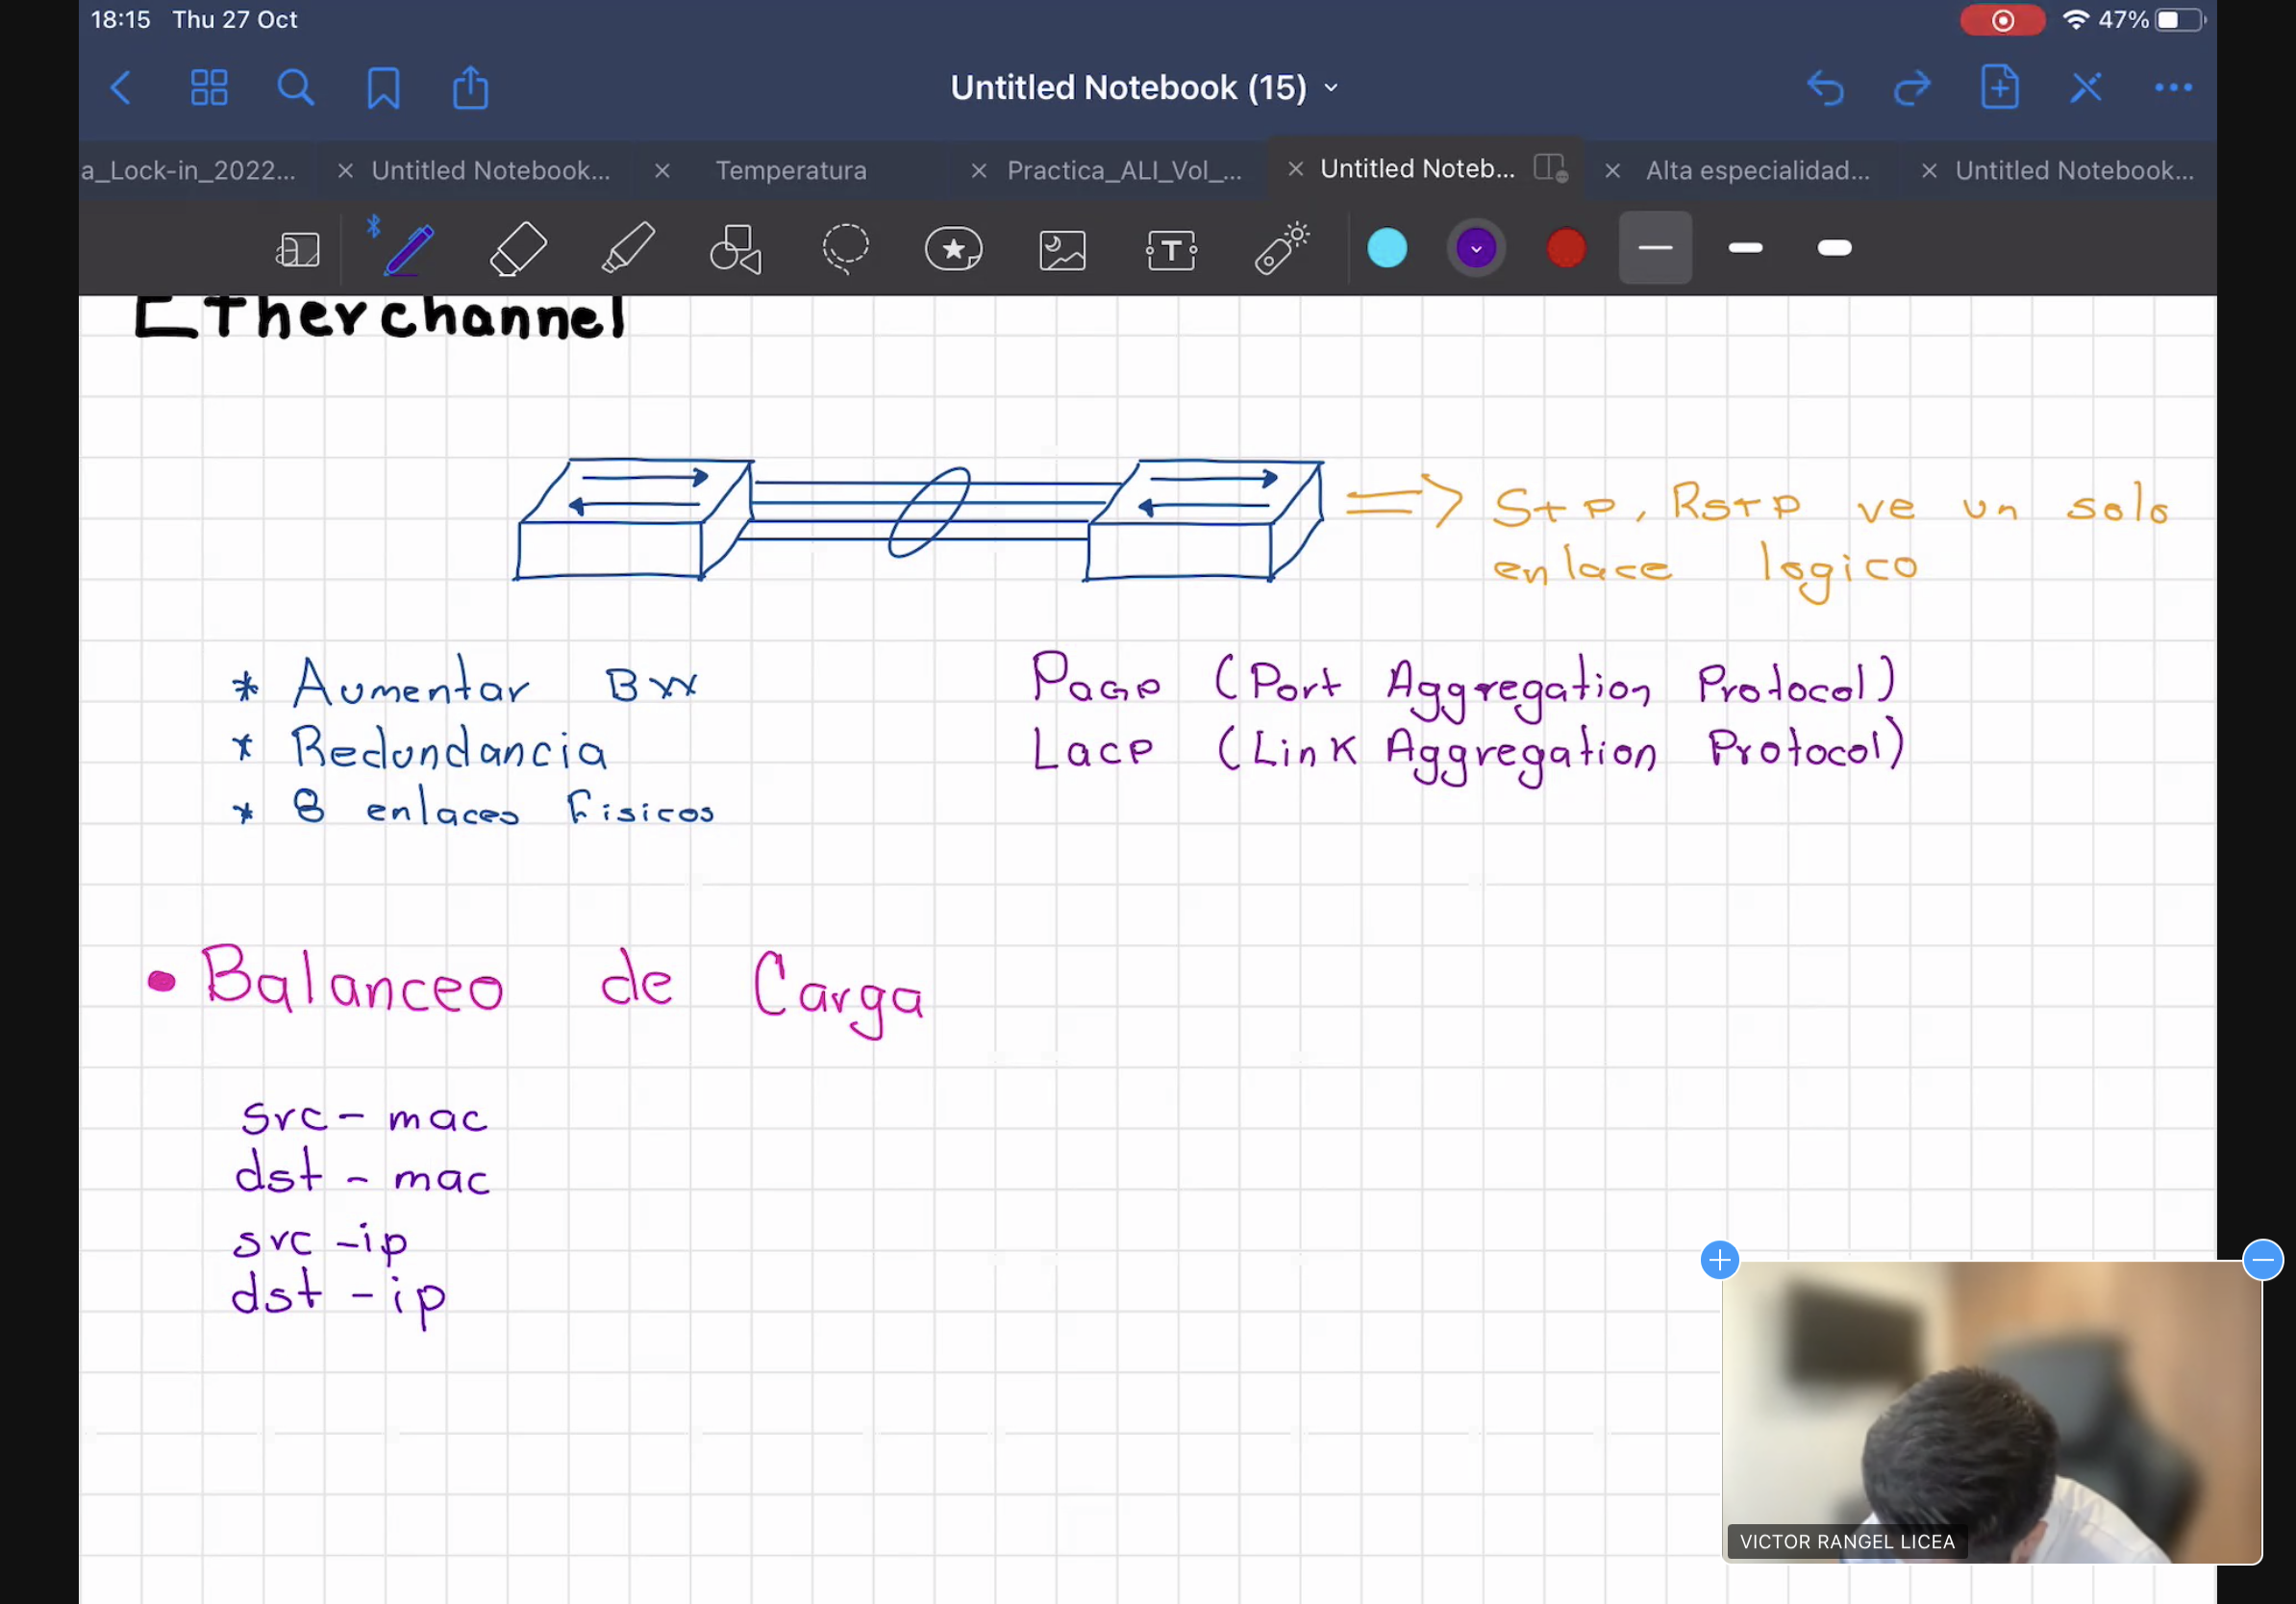 18:15 Thu 27 Oct
47%
Untitled Notebook (15)
a_Lock-in_2022...
Untitled Notebook...
Temperatura
Practica_ALI_Vol_...
Untitled Noteb...
Alta especialidad...
Untitled Notebook...
Etherchannel
STP, RSTP ve un solo
enlace logico
* Aumentar BW
* Redundancia
* 8 enlaces Fisicos
PAGP (Port Aggregation Protocol)
LACP (Link Aggregation Protocol)
• Balanceo de Carga
src - mac
dst - mac
src - ip
dst - ip
VICTOR RANGEL LICEA